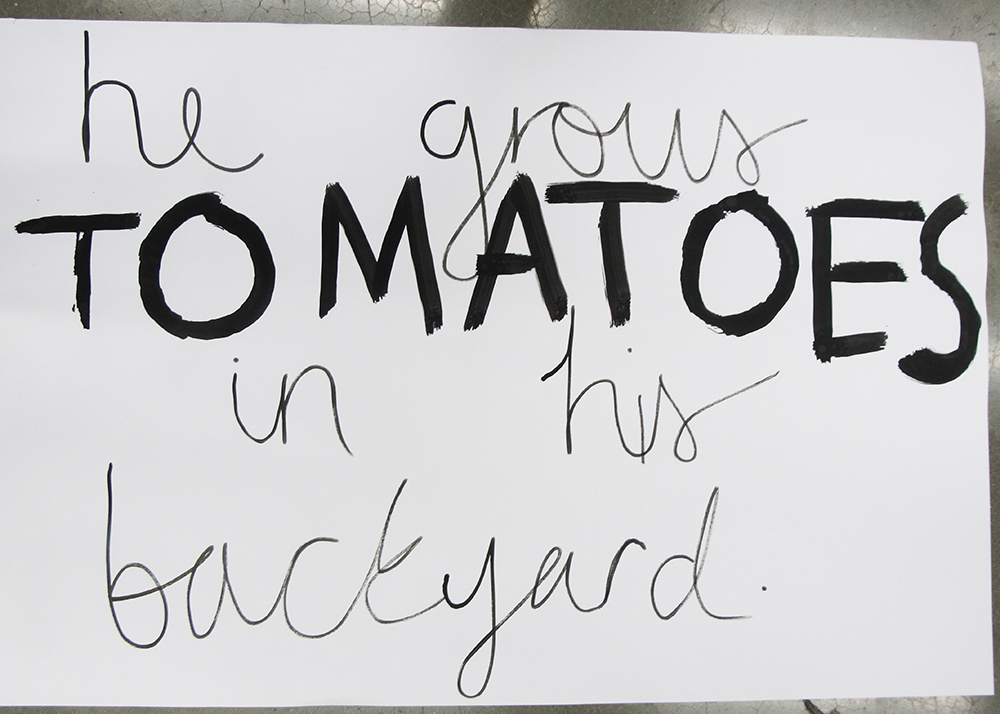 he grows
TOMATOES
in his
backyard.